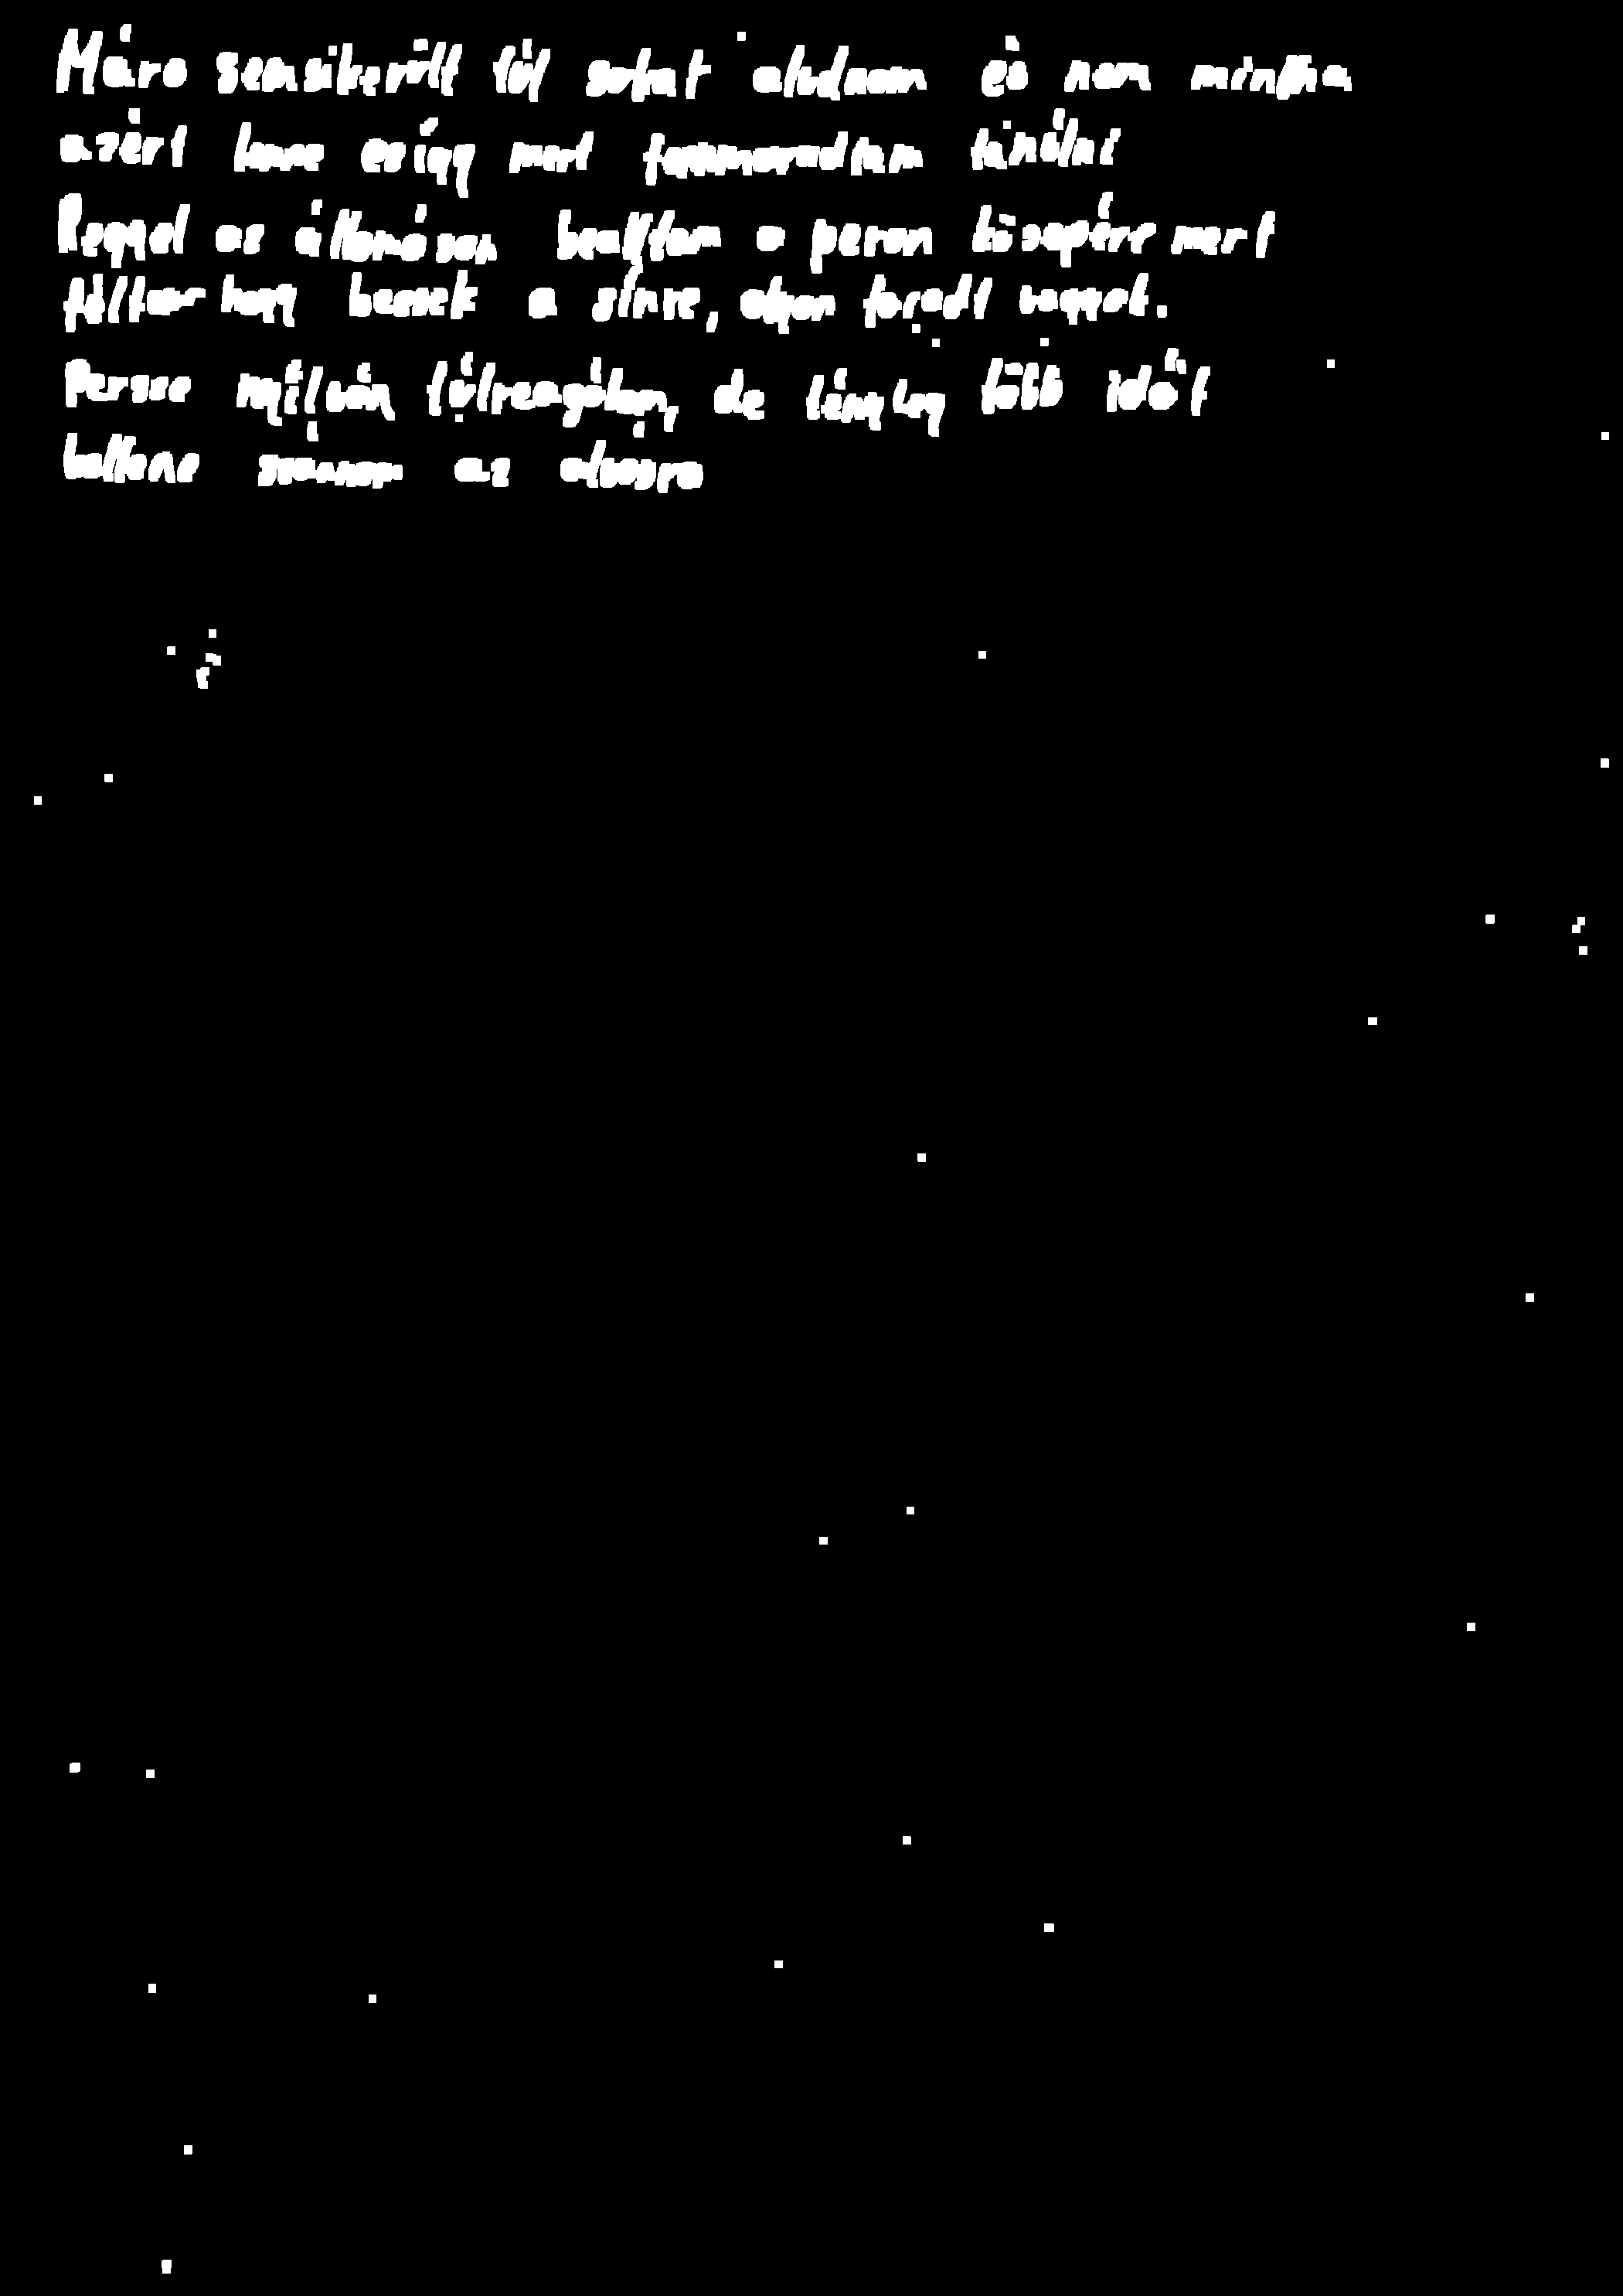 Mára sem sikerült túl sokat aludnom és nem mintha
azért lenne ez így mert fennmaradtam tanulni
Reggel az állomáson beálltam a peron közepére mert
féltem hogy beesek a sínre, olyan fáradt vagyok.
Persze nyilván túlreagálom, de tényleg több időt
kellene szánnom az alvásra